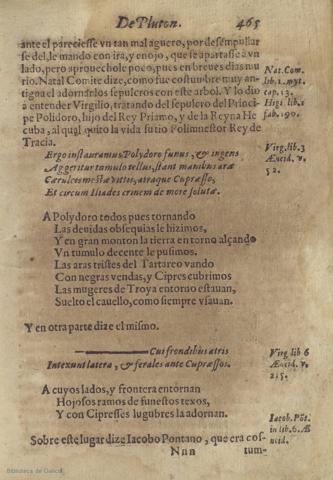 De Pluton. 465
ante el pareciesse vn tan mal aguero, por desempulgar
se del, le mando con ira, y enojo, que se apartasse a vn
lado, pero aprouechole poco, pues en breues dias mu
rio. Natal Comite dize, como fue costumbre muy an-
tigua el adornar los sepulcros con este arbol. Y lo dio
a entender Virgilio, tratando del sepulcro del Princi
pe Polidoro, hijo del Rey Priamo, y de la Reyna He
cuba, al qual quito la vida su tio Polimnestor Rey de
Tracia.
Nat. Com.
lib. 1. myt.
cap. 13.
Higi. lib. 1
fab. 190.
Ergo instauramus Polydoro funus, & ingens
Aggeritur tumulo tellus, stant manibus aræ
Cæruleis mæstæ vittis, atraque Cupresso,
Et circum Iliades crinem de more solutæ.
Virg. lib. 3
Æneid. v.
52.
A Polydoro todos pues tornando
Las deuidas obsequias le hizimos,
Y en gran monton la tierra en torno alçando
Vn tumulo decente le pusimos.
Las aras tristes del Tartareo vando
Con negras vendas, y Cipres cubrimos
Las mugeres de Troya entorno estauan,
Suelto el cauello, como siempre vsauan.
Y en otra parte dize el mismo.
Cui frondibus atris
Intexunt latera, & ferales ante Cupressos.
Virg. lib 6
Æneid. v.
215.
A cuyos lados, y frontera entornan
Hojosos ramos de funestos texos,
Y con Cipresses lugubres la adornan.
Sobre este lugar dize Iacobo Pontano, que era cos-
Iacob. Pōt.
in lib. 6. Æ
neid.
Nnn tum-
Biblioteca de Galicia